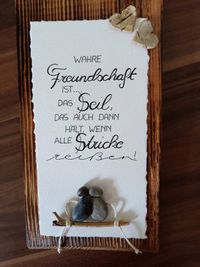 WAHRE
Freundschaft
IST....
DAS Seil,
DAS AUCH DANN
HÄLT, WENN
ALLE Stricke
reißen!